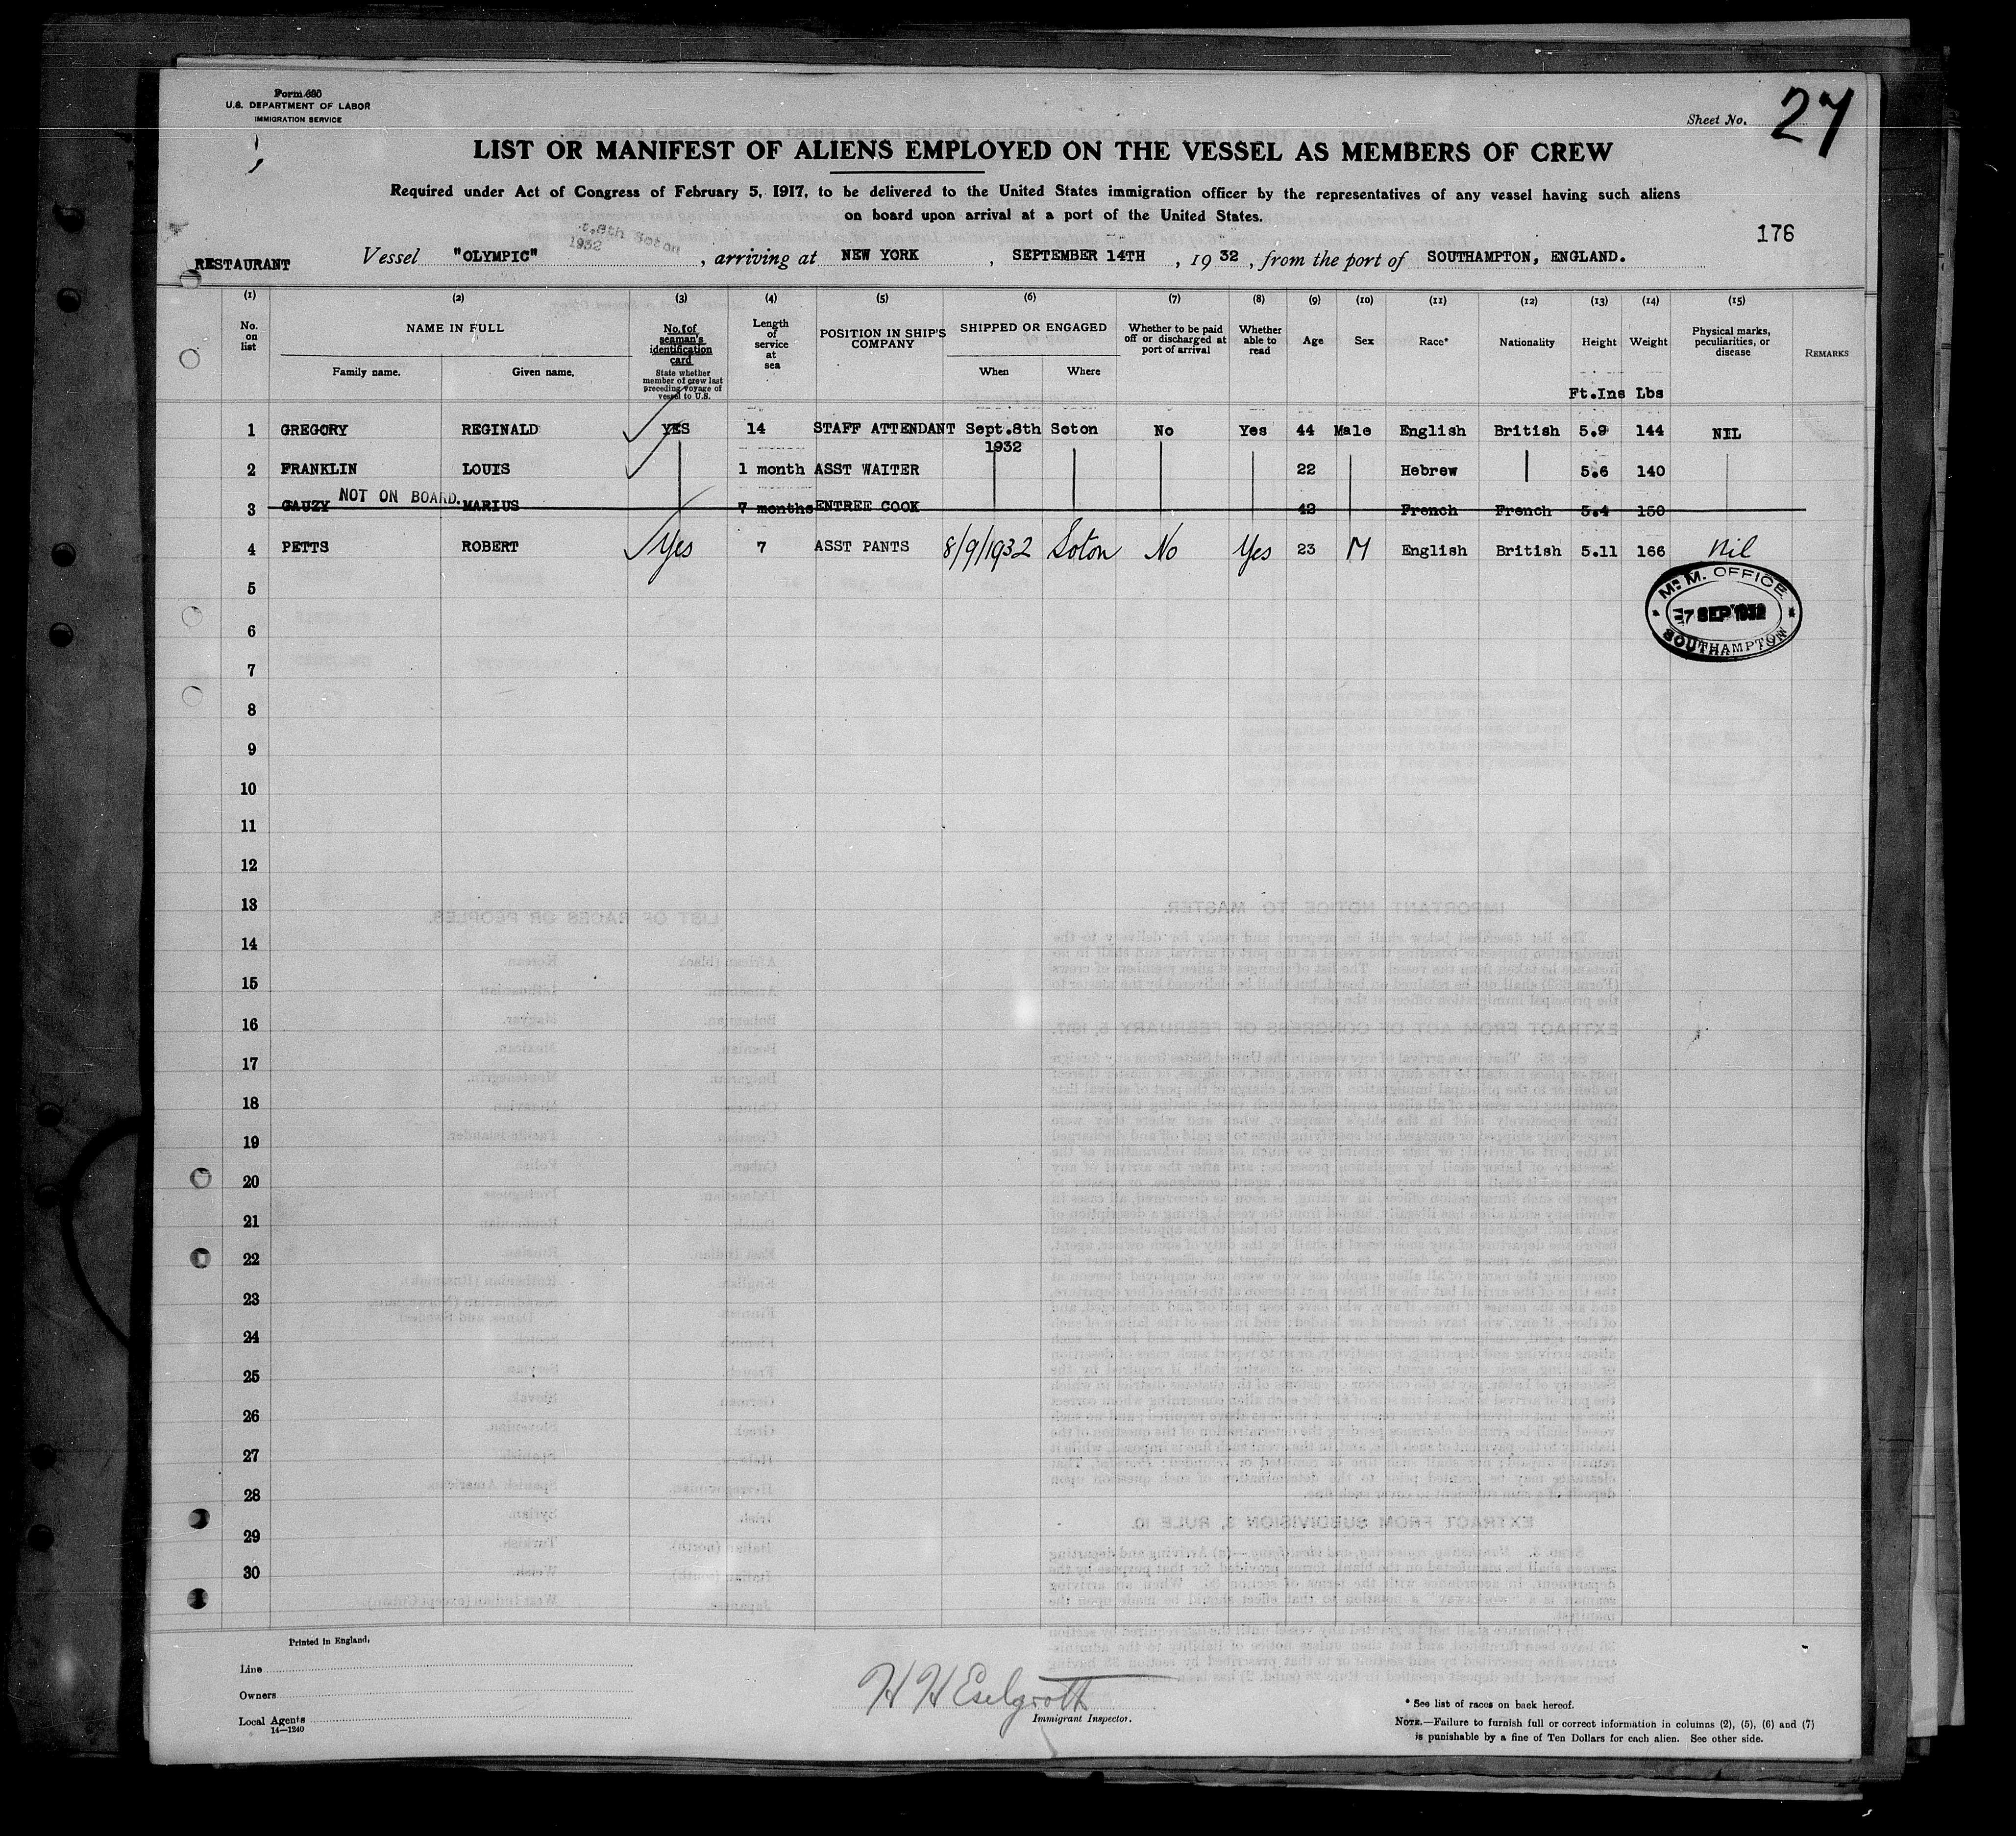 Form 680
U.S. DEPARTMENT OF LABOR
IMMIGRATION SERVICE
Sheet No. 27
LIST OR MANIFEST OF ALIENS EMPLOYED ON THE VESSEL AS MEMBERS OF CREW
Required under Act of Congress of February 5, 1917, to be delivered to the United States immigration officer by the representatives of any vessel having such aliens
on board upon arrival at a port of the United States.
176
t.8th Soton
1932
RESTAURANT Vessel "OLYMPIC" , arriving at NEW YORK , SEPTEMBER 14TH , 19 32 , from the port of SOUTHAMPTON, ENGLAND.
(1) (2) (3) (4) (5) (6) (7) (8) (9) (10) (11) (12) (13) (14) (15)
No. on list NAME IN FULL Family name. Given name. No. of seaman's identification card State whether member of crew last preceding voyage of vessel to U.S. Length of service at sea POSITION IN SHIP'S COMPANY SHIPPED OR ENGAGED When Where Whether to be paid off or discharged at port of arrival Whether able to read Age Sex Race* Nationality Height Weight Physical marks, peculiarities, or disease REMARKS
Ft.Ins Lbs
1 GREGORY REGINALD YES 14 STAFF ATTENDANT Sept.8th Soton No Yes 44 Male English British 5.9 144 NIL
1932
2 FRANKLIN LOUIS 1 month ASST WAITER 22 Hebrew 5.6 140
NOT ON BOARD.
3 GAUZY MARIUS 7 months ENTREE COOK 42 French French 5.4 150
4 PETTS ROBERT Yes 7 ASST PANTS 8/9/1932 Soton No Yes 23 M English British 5.11 166 Nil
MR M. OFFICE
7 SEP 1932
SOUTHAMPTON
5
6
7
8
9
10
11
12
13
14
15
16
17
18
19
20
21
22
23
24
25
26
27
28
29
30
Printed in England.
Line
Owners
Local Agents
14—1240
H H Eselgroth
Immigrant Inspector.
* See list of races on back hereof.
NOTE.—Failure to furnish full or correct information in columns (2), (5), (6) and (7)
is punishable by a fine of Ten Dollars for each alien. See other side.